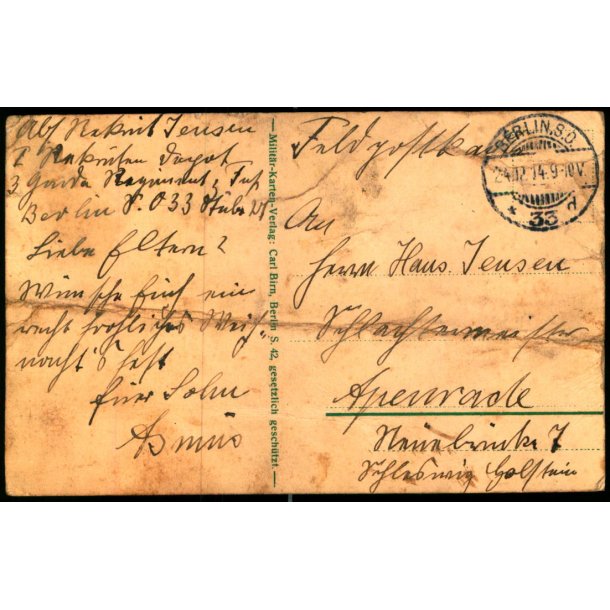 Abs Rekrut Jensen
1 Rekruten Depot
3 Garde Regiment z. Fuß
Berlin S. O 33 Stube
Liebe Eltern?
Wünsche Euch ein
recht fröhliches Weih
nachtsfest
Euer Sohn
Asmus
— Militär-Karten-Verlag: Carl Birn, Berlin S. 42, gesetzlich geschützt. —
Feldpostkarte
BERLIN S.O.
24.12.14.9-10V.
* 33 d
An
Herrn Hans Jensen
Schlachtermeister
Apenrade
Neuebrücke 7
Schleswig Holstein